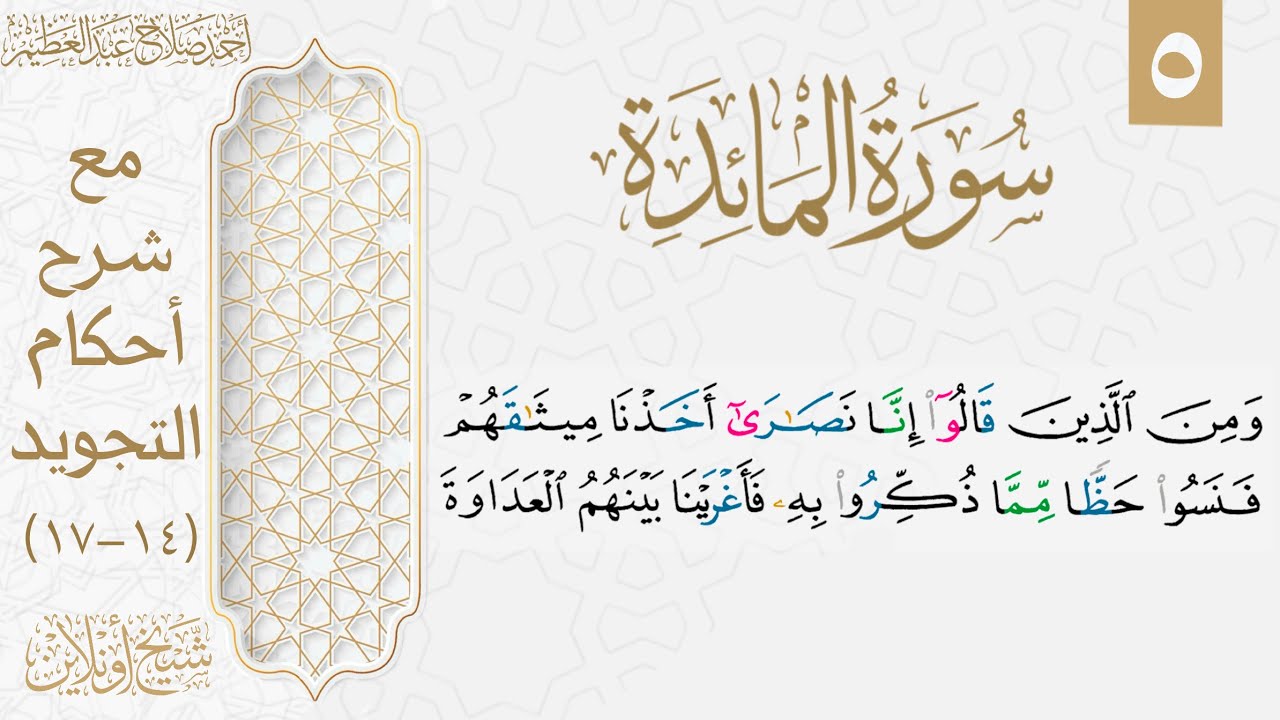 ٥
سُورَةُ الْمَائِدَةِ
وَمِنَ ٱلَّذِينَ قَالُوٓا۟ إِنَّا نَصَـٰرَىٰٓ أَخَذْنَا مِيثَـٰقَهُمْ
فَنَسُوا۟ حَظًّا مِّمَّا ذُكِّرُوا۟ بِهِۦ فَأَغْرَيْنَا بَيْنَهُمُ ٱلْعَدَاوَةَ
أحمد صلاح عبد العظيم
مع
شرح
أحكام
التجويد
(١٤–١٧)
شيخ أونلاين